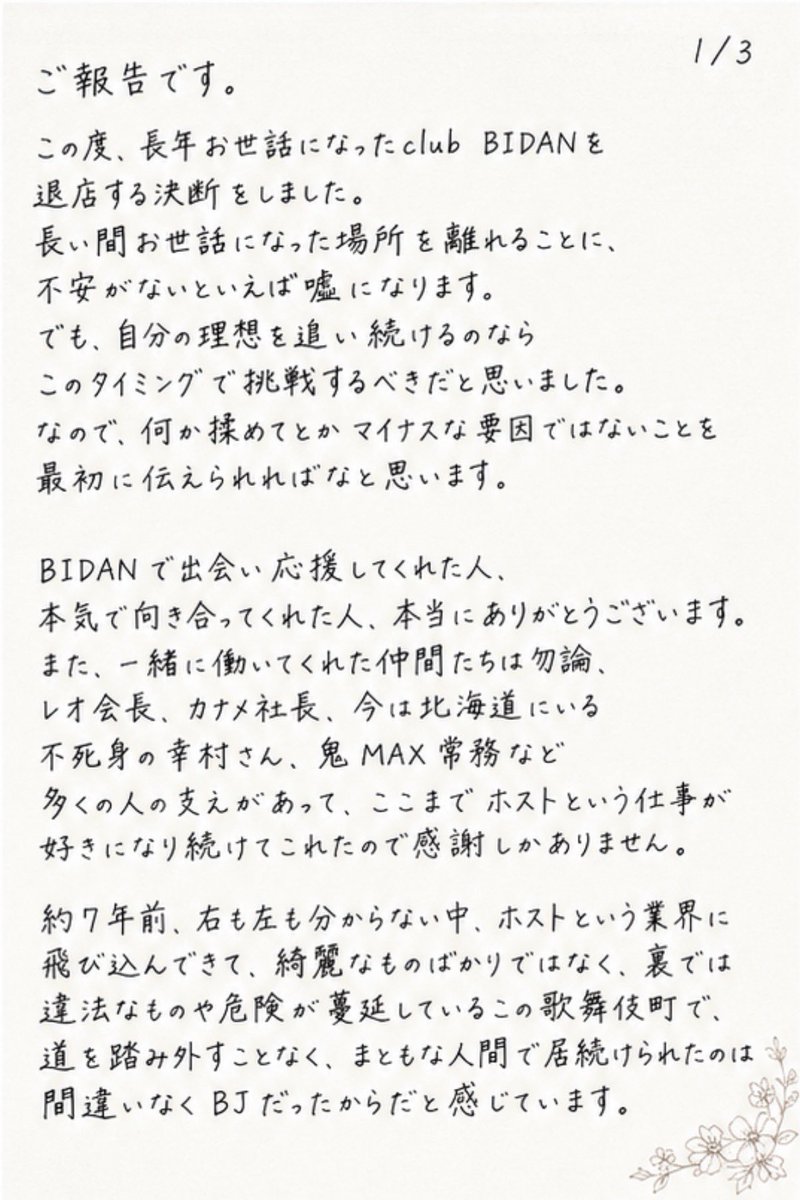 1/3
ご報告です。
この度、長年お世話になったclub BIDANを
退店する決断をしました。
長い間お世話になった場所を離れることに、
不安がないといえば嘘になります。
でも、自分の理想を追い続けるのなら
このタイミングで挑戦するべきだと思いました。
なので、何か揉めてとかマイナスな要因ではないことを
最初に伝えられればなと思います。
BIDANで出会い応援してくれた人、
本気で向き合ってくれた人、本当にありがとうございます。
また、一緒に働いてくれた仲間たちは勿論、
レオ会長、カナメ社長、今は北海道にいる
不死身の幸村さん、鬼MAX常務など
多くの人の支えがあって、ここまでホストという仕事が
好きになり続けてこれたので感謝しかありません。
約7年前、右も左も分からない中、ホストという業界に
飛び込んできて、綺麗なものばかりではなく、裏では
違法なものや危険が蔓延しているこの歌舞伎町で、
道を踏み外すことなく、まともな人間で居続けられたのは
間違いなくBJだったからだと感じています。